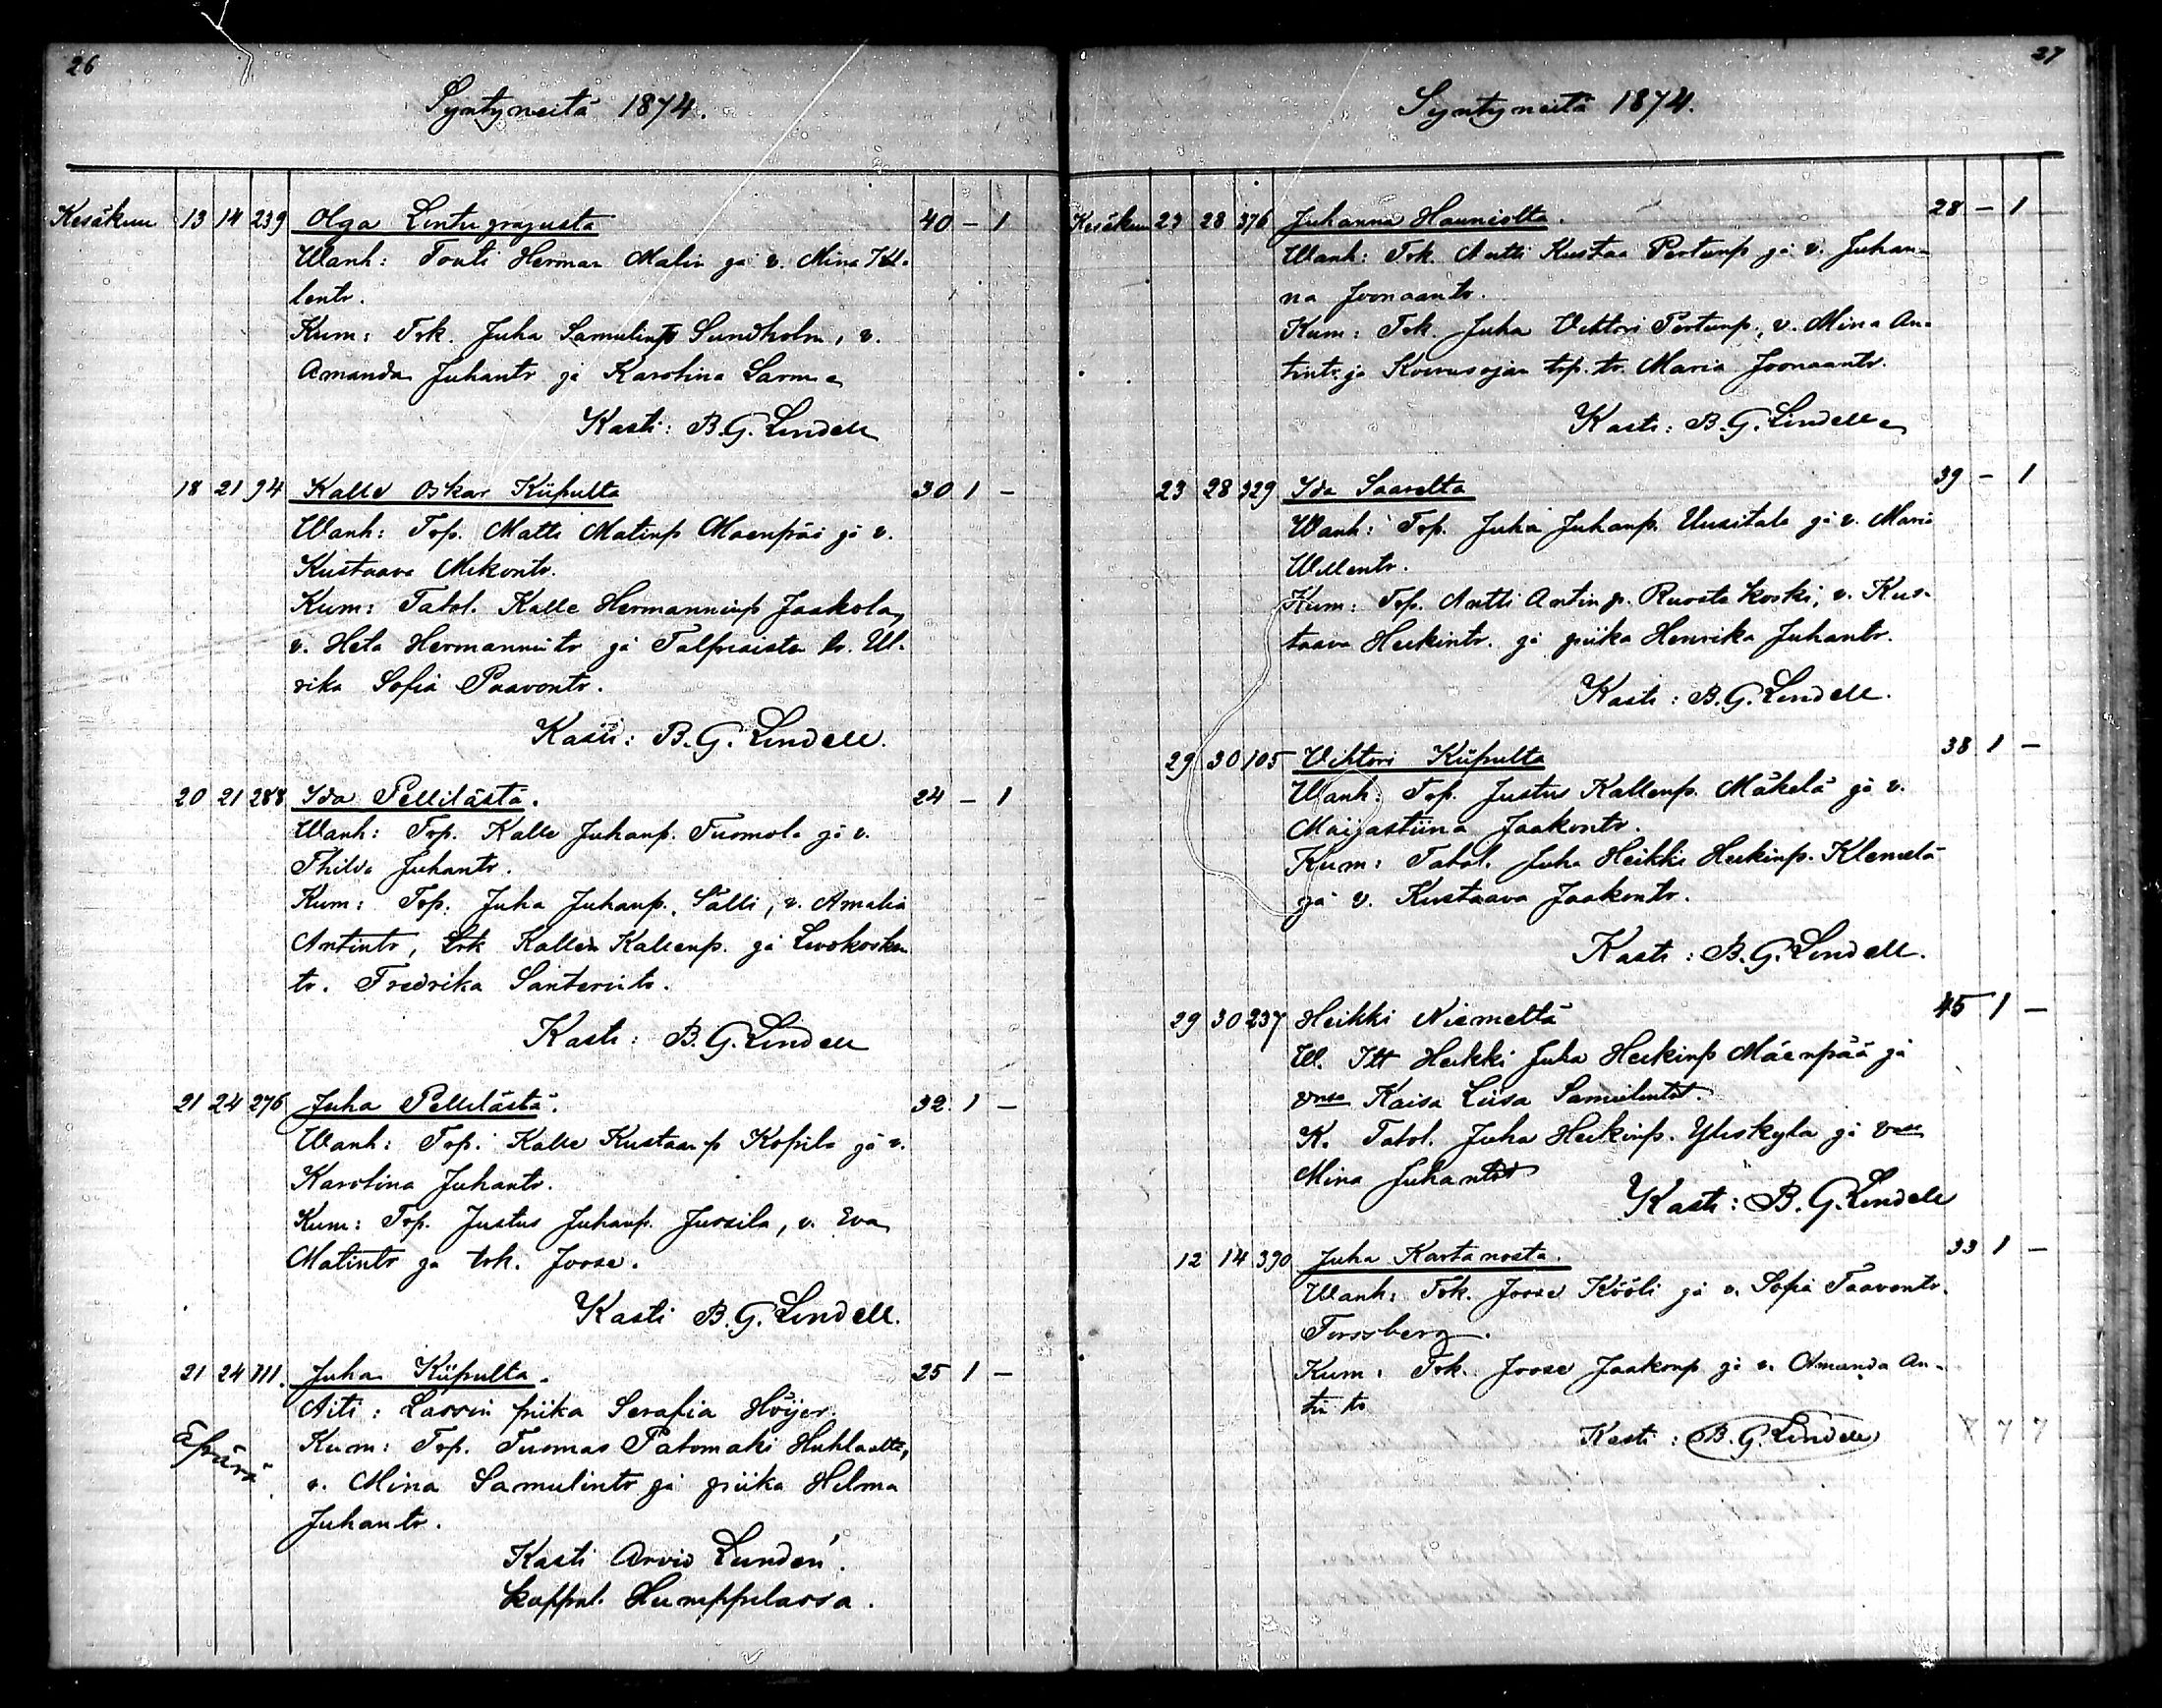 26
Syntyneitä 1874.
Kesäkuu 13 14 239 Olga Lintupajusta 40 – 1
Wanh: Torti Herman Malin ja v. Mina
lentr.
Kum: Trk. Juha Samulinp Sundholm, v.
Amanda Juhantr ja Karolina Larm
Kasti: B.G. Lindell
18 21 94 Kalle Oskar Kiipulta 30 1 –
Wanh: Trp. Matti Matinp Maenpää ja v.
Kustaava Mikontr.
Kum: Tatol. Kalle Hermanninp Jaakola,
v. Heta Hermannintr ja Talpiaista tr. Ul-
rika Sofia Paavontr.
Kasti: B.G. Lindell.
20 21 288 Ida Pellilästä. 24 – 1
Wanh: Trp. Kalle Juhanp. Tuomola ja v.
Thilda Juhantr.
Kum: Trp. Juha Juhanp. Sälli, v. Amalia
Antintr, trk Kallen Kallenp. ja Levokosken
tr. Fredrika Santerintr.
Kasti: B.G. Lindell
21 24 276 Juha Pellilästä. 32 1 –
Wanh: Trp. Kalle Kustaanp Kopila ja v.
Karolina Juhantr.
Kum: Trp. Justus Juhanp. Jussila, v. Eva
Matintr ja trk. Joose.
Kasti B.G. Lindell.
21 24 111. Juha Kiipulta. 25 1 –
Äiti: Lassin piika Serafia Höijer.
Äpärä
Kum: Trp. Tuomas Patomaki Huhlaalta,
v. Mina Samulintr ja piika Hilma
Juhantr.
Kasti Arvid Lundén.
kappal. Humppilassa.
27
Syntyneitä 1874.
Kesäkuu 27 28 376 Juhanna Hauniolta. 28 – 1
Wanh: Trk. Antti Kustaa Pertunp ja v. Juhan-
na Joonaantr.
Kum: Trk. Juha Vihtori Pertunp, v. Mina An-
tintr. ja Koivusojan trp. tr. Maria Joonaantr.
Kasti: B.G. Lindell
23 28 329 Ida Saarelta 39 – 1
Wanh: Trp. Juha Juhanp. Uusitalo ja v. Maria
Willentr.
Kum: Trp. Antti Antinp. Ruostekoski, v. Kus-
taava Heikintr. ja piika Henrika Juhantr.
Kasti: B.G. Lindell.
29 30 105 Vihtori Kiipulta 38 1 –
Wanh: Trp. Justus Kallenp. Mäkelä ja v.
Maijastiina Jaakontr.
Kum: Tatol. Juha Heikki Heikinp. Klemelä
ja v. Kustaava Jaakontr.
Kasti: B.G. Lindell.
29 30 237 Heikki Niemeltä 45 1 –
W. Itt Heikki Juha Heikinp Mäenpää ja
vnsa Kaisa Liisa Samulintdt.
K. Tatol. Juha Heikinp. Yliskyla ja vnsa
Mina Juhantdt
Kasti: B.G. Lindell
12 14 390 Juha Kartanosta. 33 1 –
Wanh: Trk. Joose Kööli ja v. Sofia Taavontr.
Forssberg.
Kum: Trk. Joose Jaakonp ja v. Amanda An-
tin tr
Kasti: B.G. Lindell